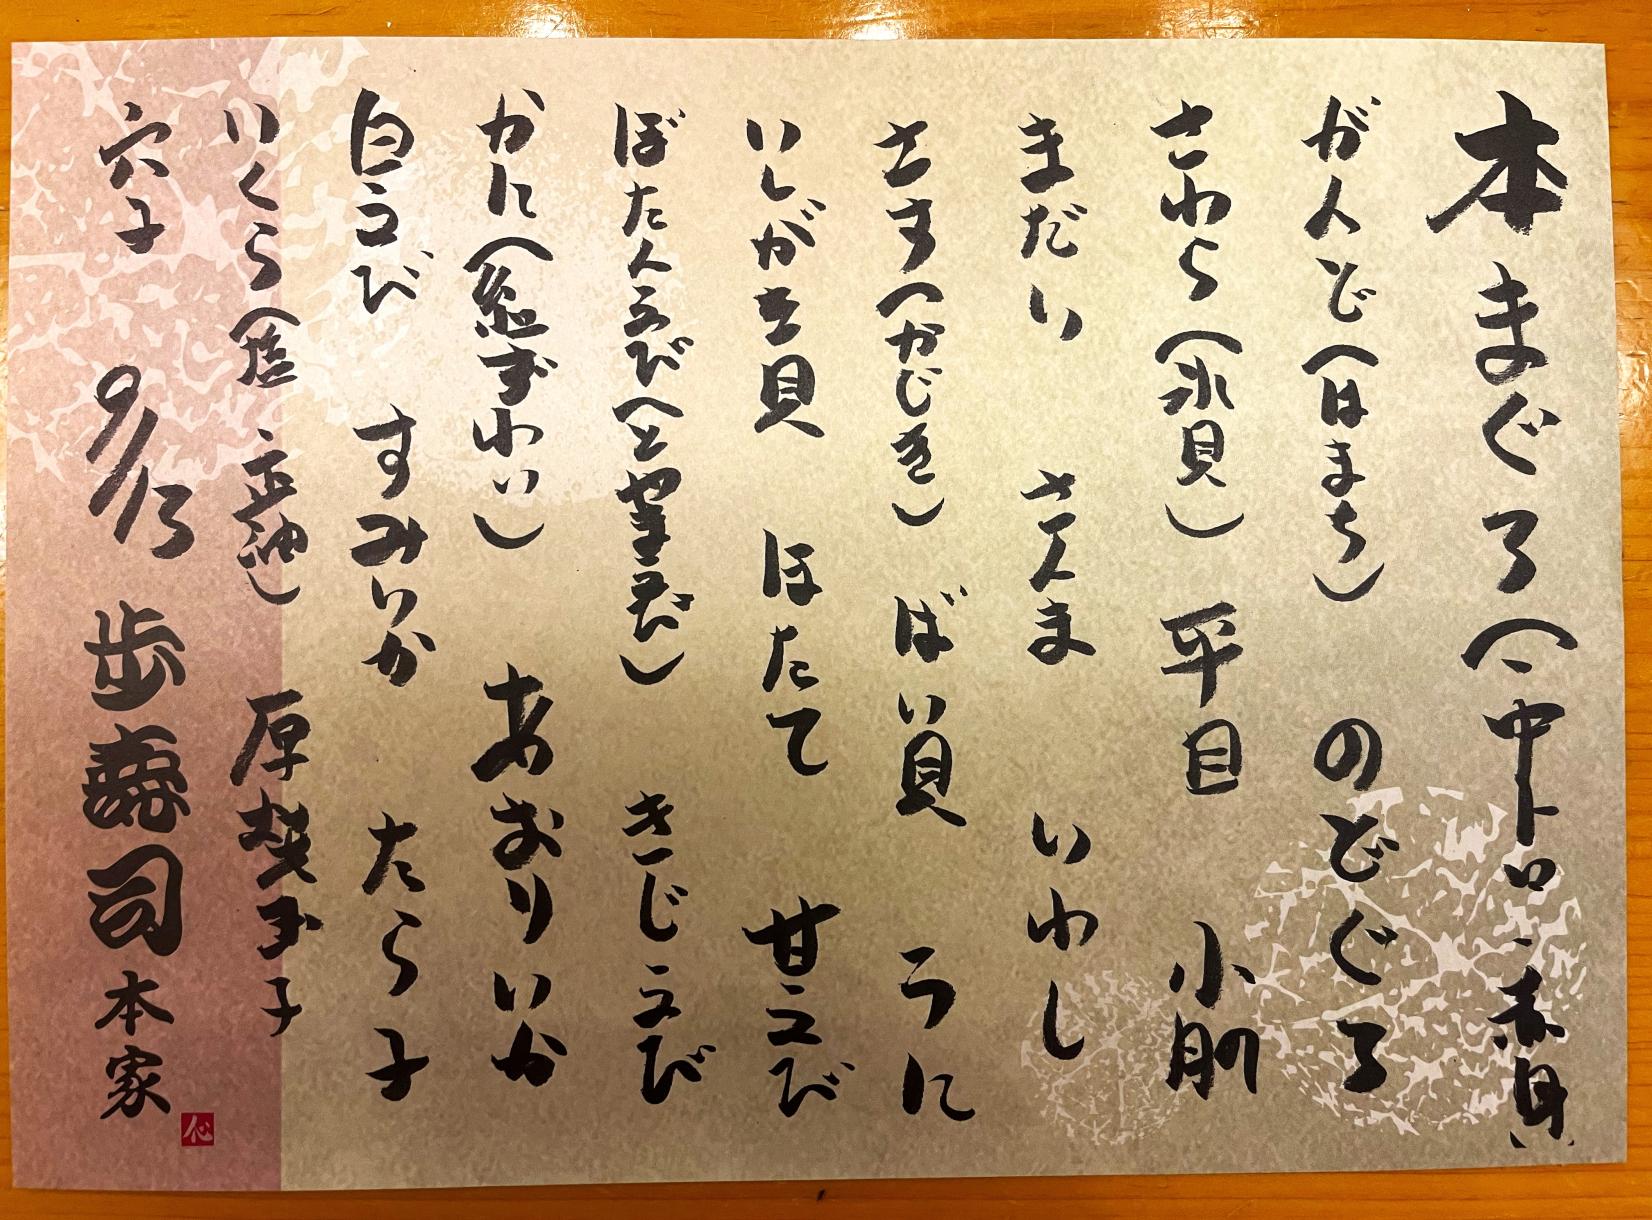 本まぐろ(中トロ・赤身)
がんど(はまち) のどぐろ
さわら(氷見) 平目 小肌
まだい さんま いわし
さす(かじき) ばい貝 うに
いしがき貝 ほたて 甘えび
ぼたんえび(とやま産) きじえび
かに(紅ずわい) あおりいか
白えび すみいか たら子
いくら(塩・正油) 厚焼玉子
穴子 9/13 歩寿司 本家